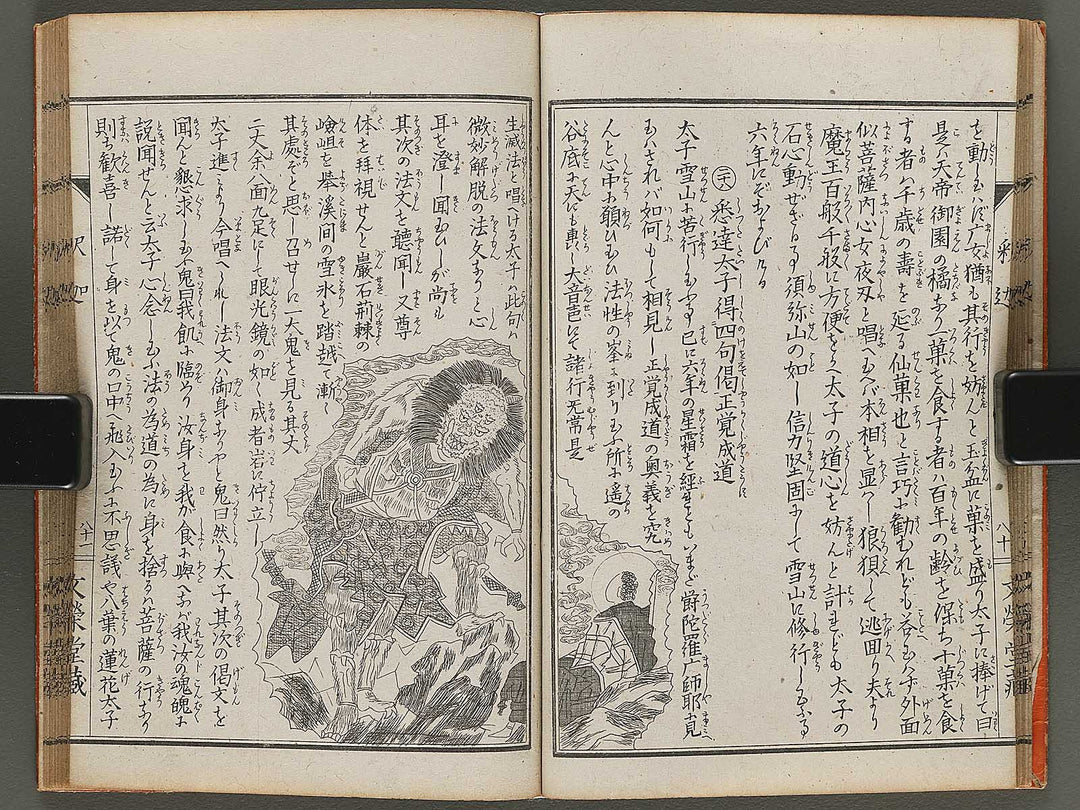 を動しむれば広女猶も其行を妨んと玉盆に菓を盛り太子に捧げて曰
是は天帝御園の橘なり一菓を食する者は百年の齢を保ち十菓を食
する者は千歳の壽を延る仙菓也と言巧に勧むれども太子外面
似菩薩内心女夜叉と唱へ玉へば本相を显し狼狽て逃回り夫より
魔王百般千般に方便をかへ太子の道心を妨んと計れども太子の
石心動ぜざる事須弥山の如し信力堅固にして雪山に修行し玉ふ事
六年にぞおよびける
㊁㊅ 悉達太子得四句偈正覚成道
太子雪山に苦行し玉ふ事已に六年の星霜を經玉ともいまだ爵陀羅广師耶真
如何もして相見し正覚成道の奥義を究
んと心中に願ひ玉ひ法性の峯に到り玉ふ所に遥の
谷底に天にも轟く大音声にて諸行无常是
生滅法と唱ける太子は此句
微妙解脱の法文なりと心
耳を澄し聞玉ひしが尚も
其次の法文を聴聞し又尊
体を拝視せんと巖石荊棘の
嶮岨を攀溪間の雪氷を踏越て漸く
其處ぞと思し召せしに一大鬼を見る其丈
二丈余八面九足にて眼光鏡の如く成者岩に佇立し
太子進より今唱へられし法文は御身なりや鬼曰然り太子其次の偈文を
聞んと懇求し玉ば鬼曰我飢に臨めり汝身を我が食に與へなば我汝の魂魄に
説聞せんと云太子心念し玉ふ法の為道の為に身を捨るは菩薩の行なり
則ち歓喜し諾して身を以て鬼の口中へ飛入玉ふに不思議や八華の蓮花太子
釈迦
八十
八十一
文榮堂藏